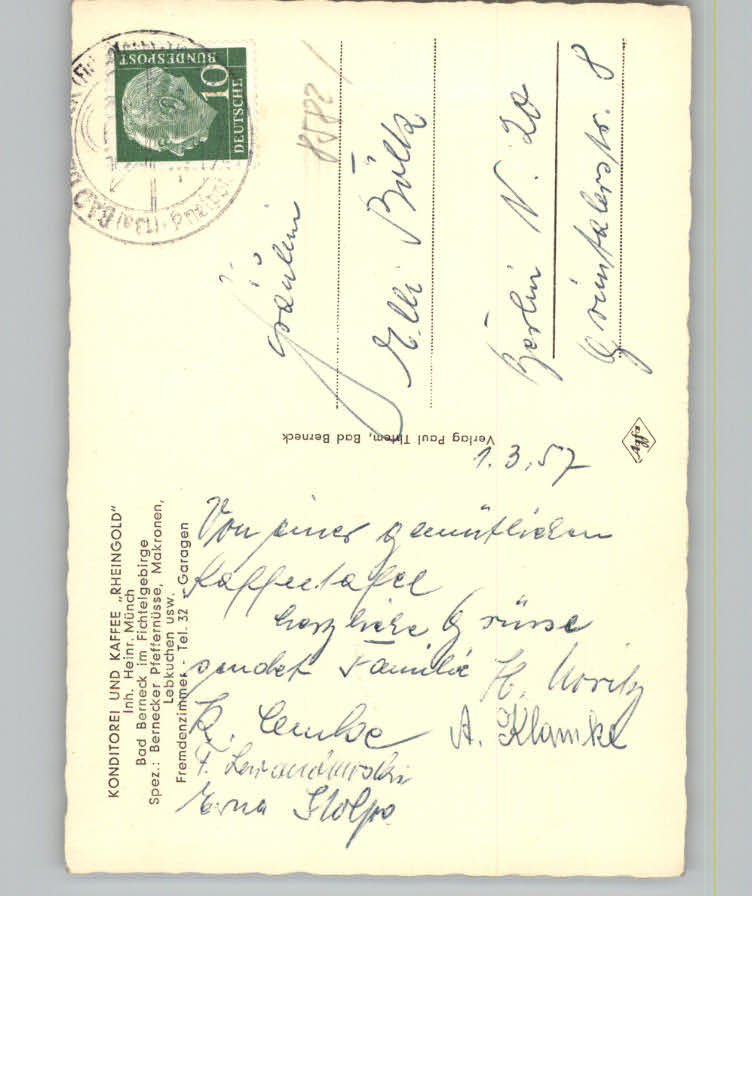 KONDITOREI UND KAFFEE „RHEINGOLD"
Inh. Heinr. Münch
Bad Berneck im Fichtelgebirge
Spez.: Bernecker Pfeffernüsse, Makronen,
Lebkuchen usw.
Fremdenzimmer - Tel. 32 - Garagen
1.3.57
Von einer gemütlichen
Kaffeetafel
herzliche Grüsse
sendet Familie H. Noritz
A. Klamke
F. Lewandowski
Erna Stolpe
Verlag Paul Thiem, Bad Berneck
DEUTSCHE
BUNDESPOST
10
(13a) BAD
8582/
Fräulein
Elli Bölk
Berlin N. 20
Grüntalerstr. 8